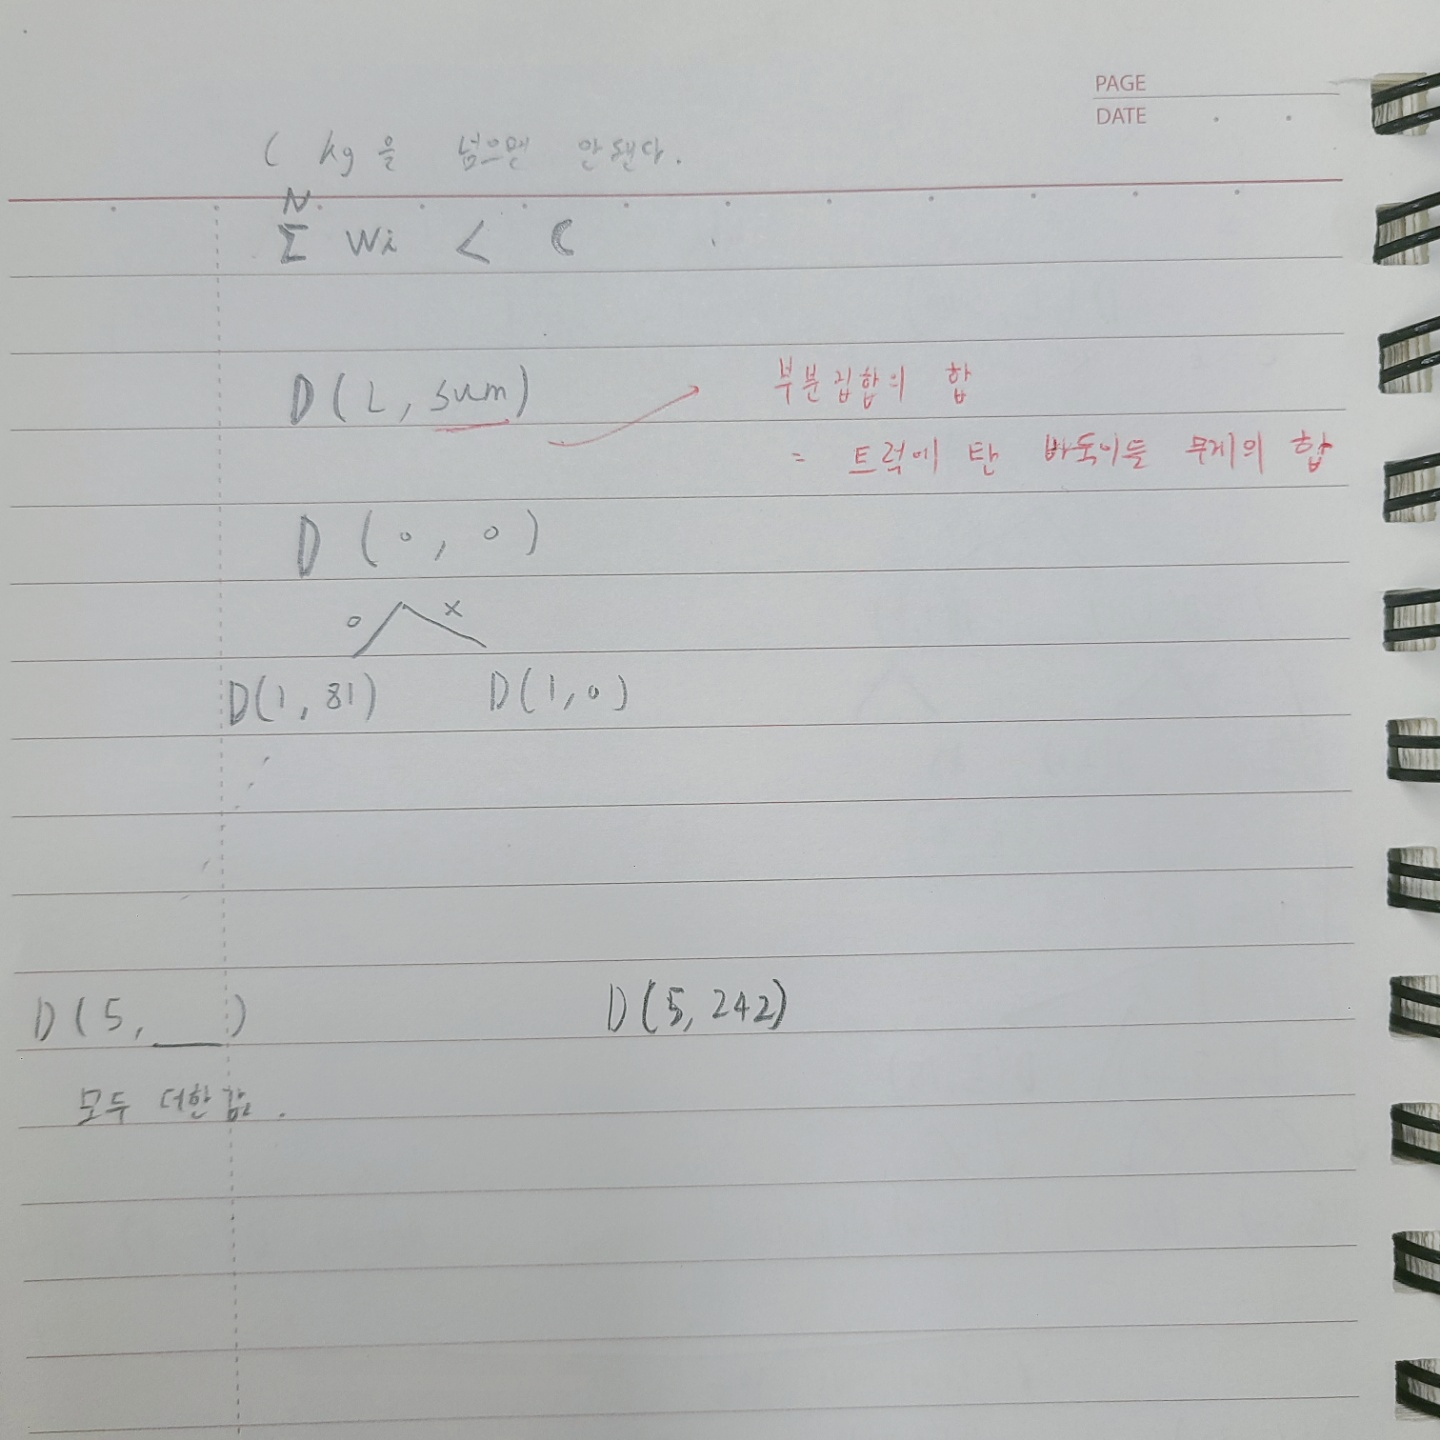 PAGE
DATE
C kg을 넘으면 안된다.
N
Σ Wi < C
D(L, sum)
부분집합의 합
= 트럭에 탄 바둑이들 무게의 합
D(0, 0)
o x
D(1, 81) D(1, 0)
D(5, ___) D(5, 242)
모두 더한 값.